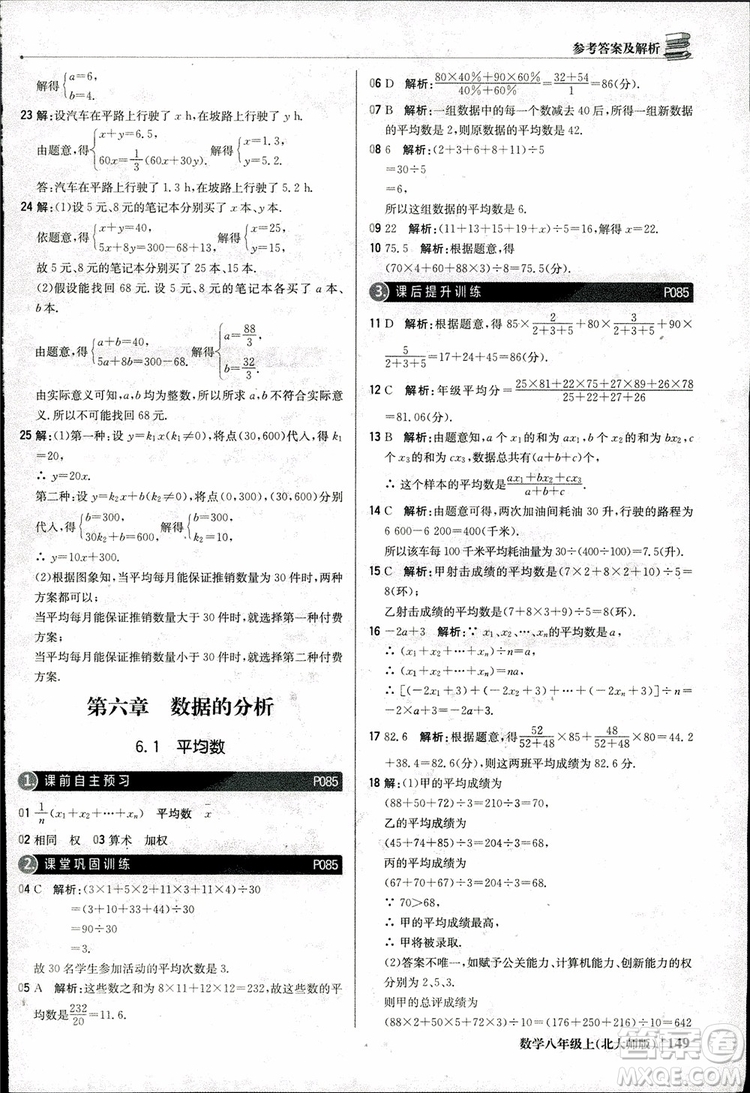 参考答案及解析
解得{a=6, b=4.
23 解:设汽车在平路上行驶了 x h,在坡路上行驶了 y h.
由题意,得{x+y=6.5, 60x=1/3(60x+30y), 解得{x=1.3, y=5.2.
答:汽车在平路上行驶了 1.3 h,在坡路上行驶了 5.2 h.
24 解:(1)设 5 元、8 元的笔记本分别买了 x 本、y 本.
依题意,得{x+y=40, 5x+8y=300-68+13, 解得{x=25, y=15.
故 5 元、8 元的笔记本分别买了 25 本、15 本.
(2)假设能找回 68 元,此时 5 元、8 元的笔记本各买了 a 本、b
本.
由题意,得{a+b=40, 5a+8b=300-68, 解得{a=88/3, b=32/3.
由实际意义可知,a,b 均为整数,所以所求 a,b 不符合实际意
义.所以不可能找回 68 元.
25 解:(1)第一种:设 y=k₁x(k₁≠0),将点(30,600)代入,得 k₁
=20,
∴ y=20x.
第二种:设 y=k₂x+b(k₂≠0),将点(0,300),(30,600)分别
代入,得{b=300, 30k₂+b=600, 解得{k₂=10, b=300.
∴ y=10x+300.
(2)根据图象知,当平均每月能保证推销数量为 30 件时,两种
方案都可以;
当平均每月能保证推销数量大于 30 件时,就选择第一种付费
方案;
当平均每月能保证推销数量小于 30 件时,就选择第二种付费
方案.
第六章 数据的分析
6.1 平均数
1. 课前自主预习 P085
01 1/n(x₁+x₂+…+xₙ) 平均数 x̄
02 相同 权 03 算术 加权
2. 课堂巩固训练 P085
04 C 解析:(3×1+5×2+12×3+6×4+4×5)÷30
=(3+10+36+24+20)÷30
=90÷30
=3.
故 30 名学生参加活动的平均次数是 3.
05 A 解析:这些数之和为 8×11+12×12=232,故这些数的平
均数是232/20=11.6.
06 D 解析:(80×40%+90×60%)/(40%+60%)=(32+54)/1=86(分).
07 B 解析:一组数据中的每一个数减去 40 后,所得一组新数据
的平均数是 2,则原数据的平均数是 42.
08 6 解析:(2+3+6+8+11)÷5
=30÷5
=6,
所以这组数据的平均数是 6.
09 22 解析:(11+13+15+19+x)÷5=16,解得 x=22.
10 75.5 解析:根据题意得:
(70×4+60×88×3)÷8=75.5(分).
3. 课后提升训练 P085
11 D 解析:根据题意,得 85×2/(2+3+5)+80×3/(2+3+5)+90×
5/(2+3+5)=17+24+45=86(分).
12 C 解析:年级平均分=(25×81+22×75+27×82+26×85)/(25+22+27+26)
=81.06(分).
13 B 解析:由题意知,a 个 x₁ 的和为 ax₁,b 个 x₂ 的和为 bx₂,c
个 x₃ 的和为 cx₃,数据总共有(a+b+c)个,
∴ 这个样本的平均数=(ax₁+bx₂+cx₃)/(a+b+c).
14 C 解析:由题意可得,两次加油间耗油 30 升,行驶的路程为
6 600-6 200=400(千米).
所以该车每 100 千米平均耗油量为 30÷(400÷100)=7.5(升).
15 C 解析:甲射击成绩的平均数为(7×2+8×2+10×1)÷5=
8(环)
乙射击成绩的平均数为(7×1+8×3+9×1)÷5=8(环).
16 -2a+3 解析:∵ x₁、x₂、…、xₙ的平均数是 a,
∴ (x₁+x₂+…+xₙ)÷n=a,
∴ [(-2x₁+3)+(-2x₂+3)+…+(-2xₙ+3)]÷n=
-2a+3.
17 82.6 解析:根据题意,得52/(52+48)×85+48/(52+48)×80=82.6(分),
所以这两班平均成绩为 82.6 分.
18 解:(1)甲的平均成绩为
(88+50+72)÷3=70(分),
乙的平均成绩为
(85+74+45)÷3=68(分),
丙的平均成绩为
(67+70+67)÷3=68(分).
∵ 70>68,
∴ 甲的平均成绩最高,
∴ 甲将被录取.
(2)答案不唯一,如赋予公关能力、计算机能力、创新能力的权
分别为 2、5、3.
则甲的总评成绩为
(88×2+50×5+72×3)÷10=(176+250+216)÷10=642
数学八年级上(北大师版) 149
答案圈
MXQE.COM